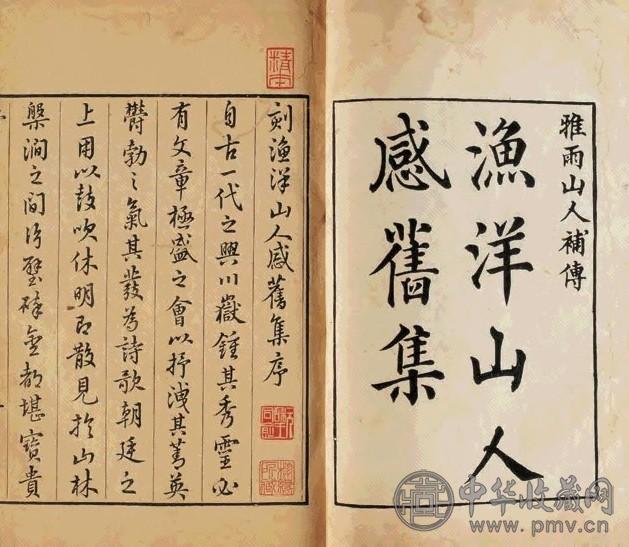 雅雨山人補傳
漁洋山人
感舊集
刻漁洋山人感舊集序
自古一代之興川嶽鍾其秀靈必
有文章極盛之會以抒洩其菁英
鬱勃之氣其發為詩歌朝廷之
上用以鼓吹休明即散見於山林
槃澗之間片璧碎金都堪寶貴
中华收藏网
www.pmv.cn